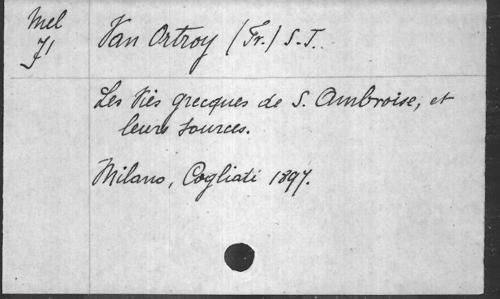 Mel
71
Van Ortroy (Fr.) S.J.
Les Vies grecques de S. Ambroise, et
leurs sources.
Milano, Cogliati 1897.